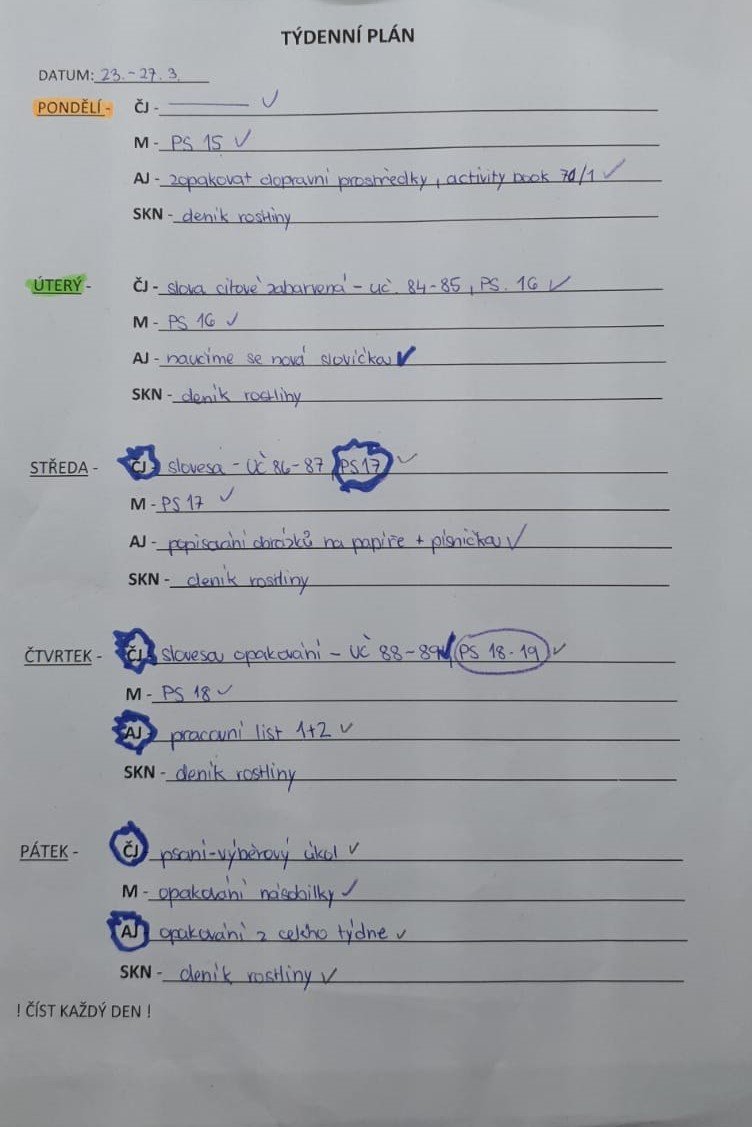 TÝDENNÍ PLÁN
DATUM: 23. - 27. 3.
PONDĚLÍ - ČJ - ——— ✓
M - PS 15 ✓
AJ - zopakovat dopravní prostředky, activity book 70/1 ✓
SKN - deník rostliny
ÚTERÝ - ČJ - slova citově zabarvená - uč. 84-85, PS. 16 ✓
M - PS 16 ✓
AJ - naučíme se nová slovíčka ✓
SKN - deník rostliny
STŘEDA - ČJ - slovesa - UČ 86-87, PS 17 ✓
M - PS 17 ✓
AJ - popisování obrázků na papíře + písnička ✓
SKN - deník rostliny
ČTVRTEK - ČJ - slovesa opakování - UČ 88-89 ✓ PS 18-19 ✓
M - PS 18 ✓
AJ - pracovní list 1+2 ✓
SKN - deník rostliny
PÁTEK - ČJ - psaní-výběrový úkol ✓
M - opakování násobilky ✓
AJ - opakování z celého týdne ✓
SKN - deník rostliny ✓
! ČÍST KAŽDÝ DEN !